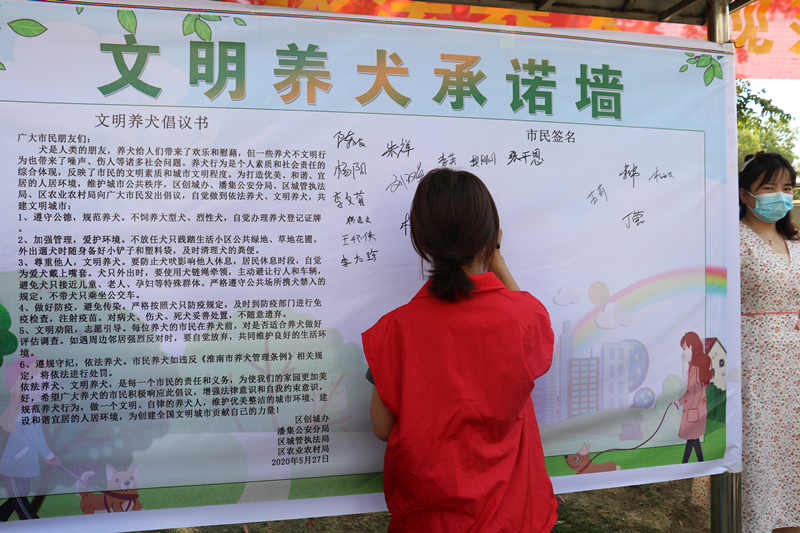 文明养犬承诺墙
文明养犬倡议书
广大市民朋友们：
犬是人类的朋友，养犬给人们带来了欢乐和慰藉，但一些养犬不文明行
为也带来了噪声、伤人等诸多社会问题。养犬行为是个人素质和社会责任的
综合体现，反映了市民的文明素质和城市文明程度。为打造优美、和谐、宜
居的人居环境，维护城市公共秩序，区创城办、潘集公安分局、区城管执法
局、区农业农村局向广大市民发出倡议，自觉做到依法养犬、文明养犬，共
建文明城市：
1、遵守公德，规范养犬。不饲养大型犬、烈性犬，自觉办理养犬登记证牌
。
2、加强管理，爱护环境。不放任犬只践踏生活小区公共绿地、草地花圃。
外出遛犬时随身备好小铲子和塑料袋，及时清理犬的粪便。
3、尊重他人，文明养犬。要防止犬吠影响他人休息，居民休息时段，自觉
为爱犬戴上嘴套。犬只外出时，要使用犬链绳牵领，主动避让行人和车辆，
避免犬只接近儿童、老人、孕妇等特殊群体。严格遵守公共场所携犬禁入的
规定，不带犬只乘坐公交车。
4、做好防疫，避免传染。严格按照犬只防疫规定，及时到防疫部门进行免
疫检查，注射疫苗。对病犬、伤犬、死犬妥善处置，不随意遗弃。
5、文明劝阻，志愿引导。每位养犬的市民在养犬前，对是否适合养犬做好
评估调查。如遇周边邻居强烈反对时，要自觉放弃，共同维护良好的生活环
境。
6、遵规守纪，依法养犬。市民养犬如违反《淮南市养犬管理条例》相关规
定，将依法进行处罚。
依法养犬、文明养犬，是每一个市民的责任和义务，为使我们的家园更加美
好，希望广大养犬的市民积极响应此倡议，增强法律意识和自我约束意识，
规范养犬行为，做一个文明、自律的养犬人，维护优美整洁的城市环境、建
设和谐宜居的人居环境，为创建全国文明城市贡献自己的力量！
区创城办
潘集公安分局
区城管执法局
区农业农村局
2020年5月27日
市民签名
朱祥
杨阳